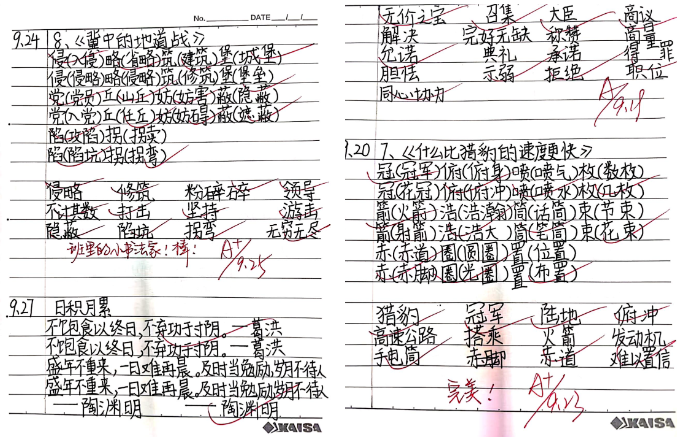 No. DATE / /
9.24 8、《冀中的地道战》
侵(入侵)略(省略)筑(建筑)堡(城堡)
侵(侵略)略(侵略)筑(修筑)堡(堡垒)
党(党员)丘(山丘)妨(妨害)蔽(隐蔽)
党(入党)丘(任丘)妨(妨碍)蔽(遮蔽)
陷(攻陷)拐(拐卖)
陷(陷坑)拐(拐弯)
侵略 修筑 粉碎碎 领导
不计其数 打击 坚持 游击
隐蔽 陷坑 拐弯 无穷无尽
班里的小书法家!棒! A+ 9.25
9.27 日积月累
不饱食以终日,不弃功于寸阴。—葛洪
不饱食以终日,不弃功于寸阴。—葛洪
盛年不重来,一日难再晨。及时当勉励,岁月不待人
盛年不重来,一日难再晨。及时当勉励,岁月不待人
——陶渊明 ——陶渊明
KAISA
无价之宝 召集 大臣 商议
解决 完好无缺 商量
允诺 典礼 承诺 得罪
胆怯 示弱 拒绝 职位
同心协力 A 9.19
9.20 7、《什么比猎豹的速度更快》
冠(冠军)俯(俯身)喷(喷气)枚(数枚)
冠(花冠)俯(俯冲)喷(喷水)枚(几枚)
箭(火箭)浩(浩瀚)筒(话筒)束(节束)
箭(射箭)浩(浩大)筒(笔筒)束(花束)
赤(赤道)圈(圆圈)置(位置)
赤(赤脚)圈(光圈)置(布置)
猎豹 冠军 陆地 俯冲
高速公路 搭乘 火箭 发动机
手电筒 赤脚 赤道 难以置信
完美! A+ 9.23
KAISA